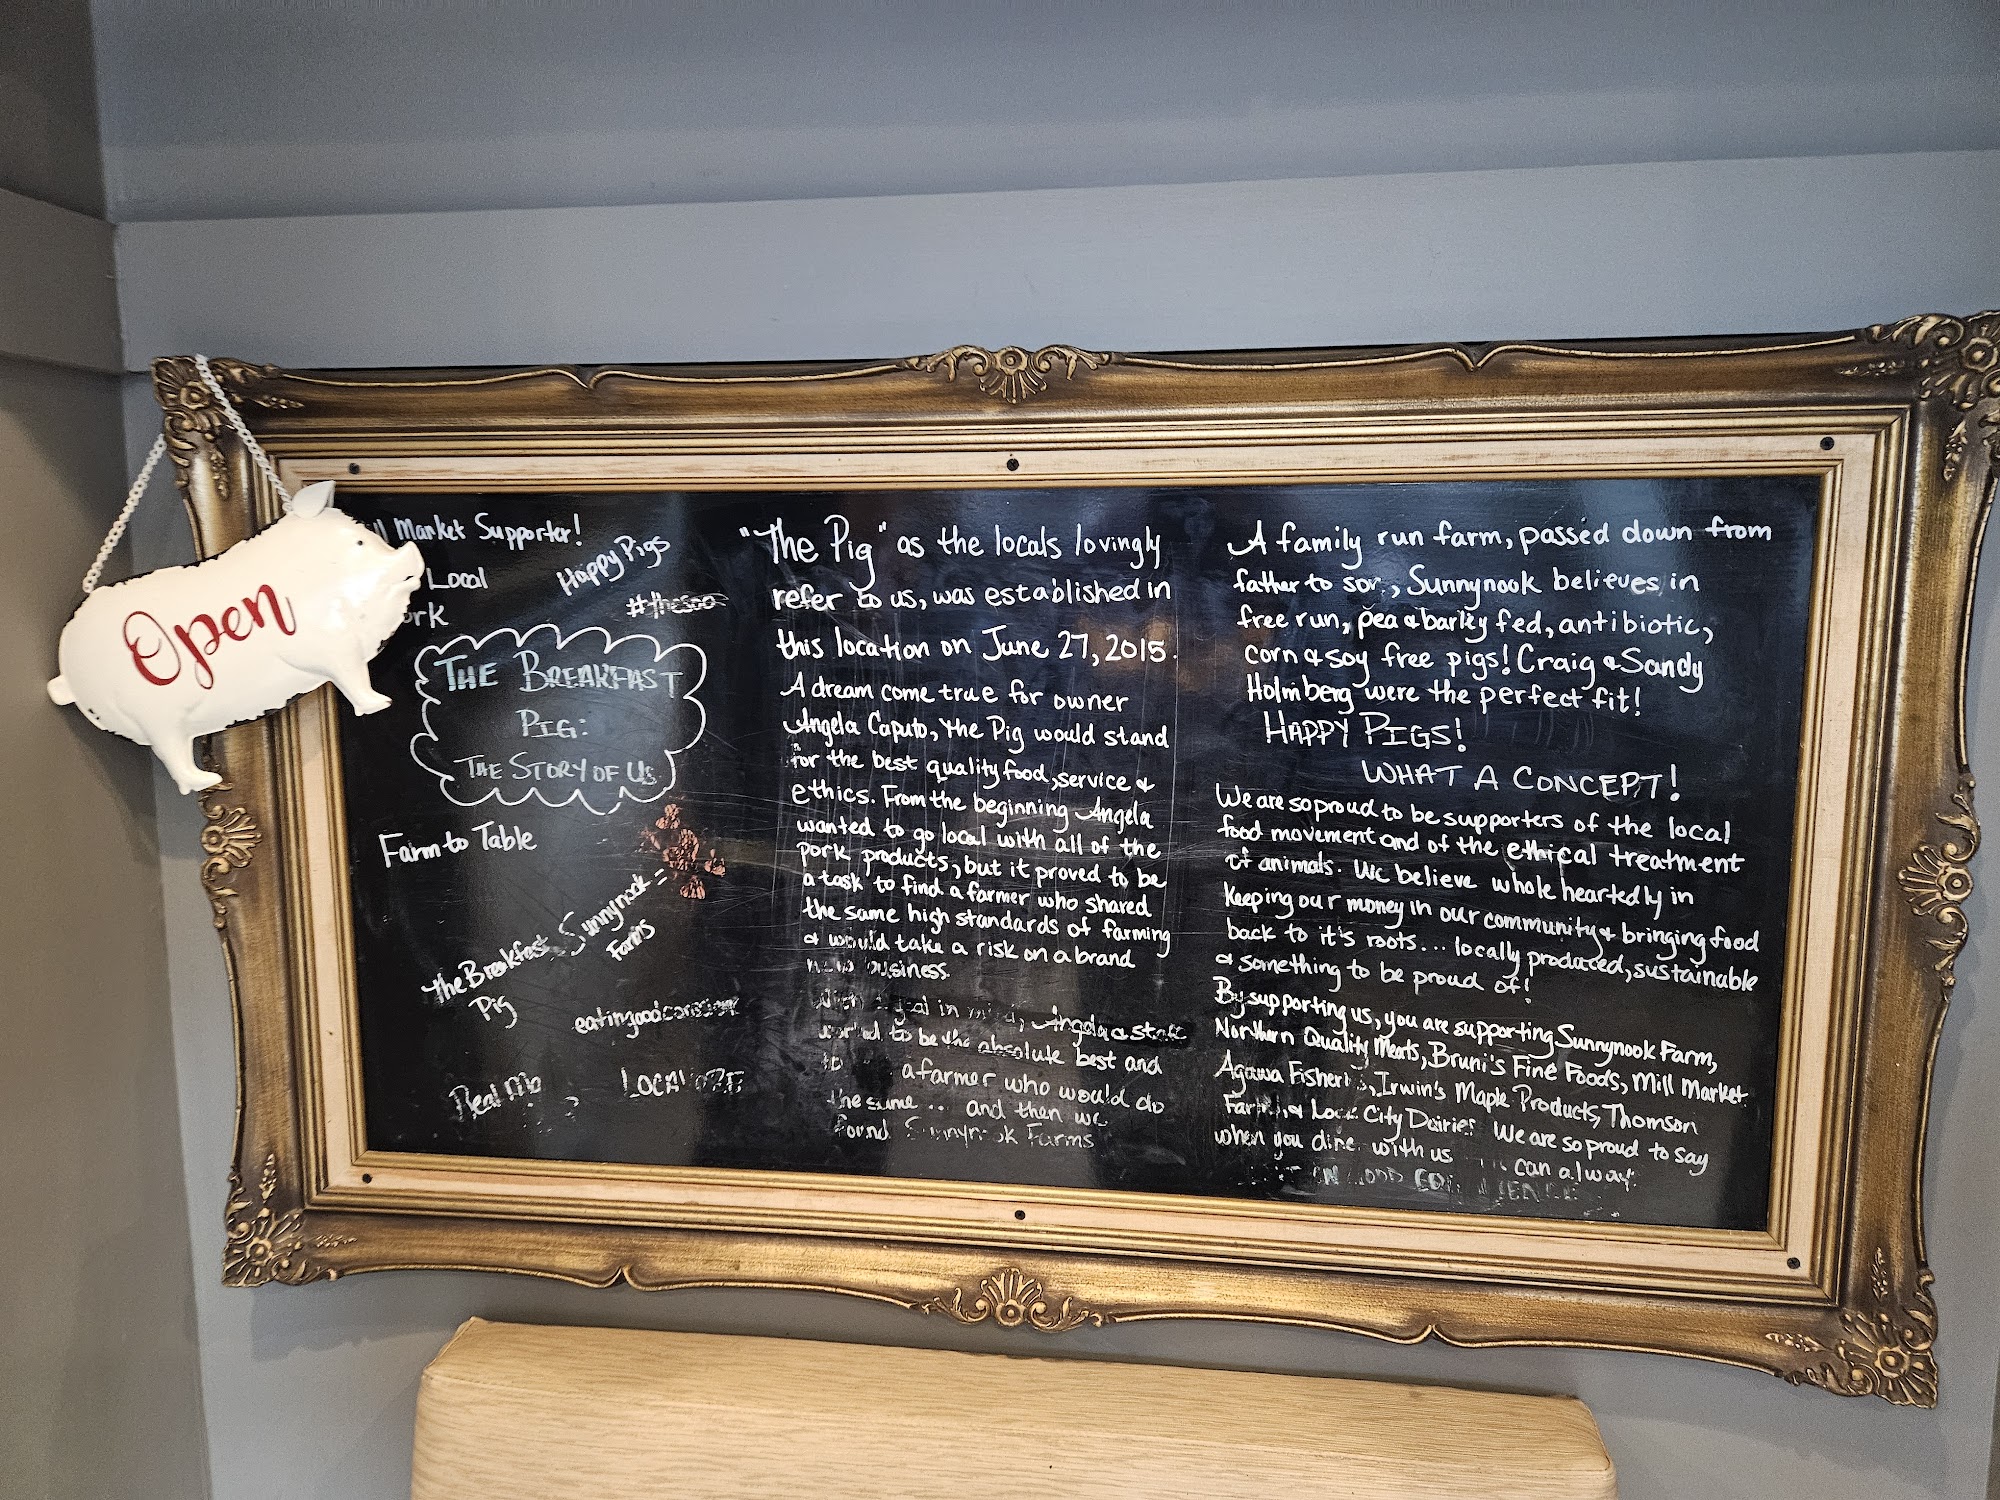 Open
Market Supporter!
Local
Happy Pigs
#thesoo
THE BREAKFAST
PIG:
THE STORY OF US
Farm to Table
the Breakfast
Pig
Sunnynook =
Farms
eatinggood
Real
"The Pig" as the locals lovingly
refer to us, was established in
this location on June 27, 2015.
A dream come true for owner
Angela Caputo, the Pig would stand
for the best quality food, service &
ethics. From the beginning Angela
wanted to go local with all of the
pork products, but it proved to be
a task to find a farmer who shared
the same high standards of farming
& would take a risk on a brand
new business.
With a goal in mind, Angela &
to be the absolute best and
a farmer who would do
the same... and then we
found Sunnynook Farms
A family run farm, passed down from
father to son, Sunnynook believes in
free run, pea & barley fed, antibiotic,
corn & soy free pigs! Craig & Sandy
Holmberg were the perfect fit!
HAPPY PIGS!
WHAT A CONCEPT!
We are so proud to be supporters of the local
food movement and of the ethical treatment
of animals. We believe whole heartedly in
keeping our money in our community & bringing food
back to it's roots... locally produced, sustainable
& something to be proud of!
By supporting us, you are supporting Sunnynook Farm,
Northern Quality Meats, Bruni's Fine Foods, Mill Market
Agawa Fisheries, Irwin's Maple Products, Thomson
Farms & Lock City Dairies We are so proud to say
when you dine with us can always
IN GOOD CONSCIENCE